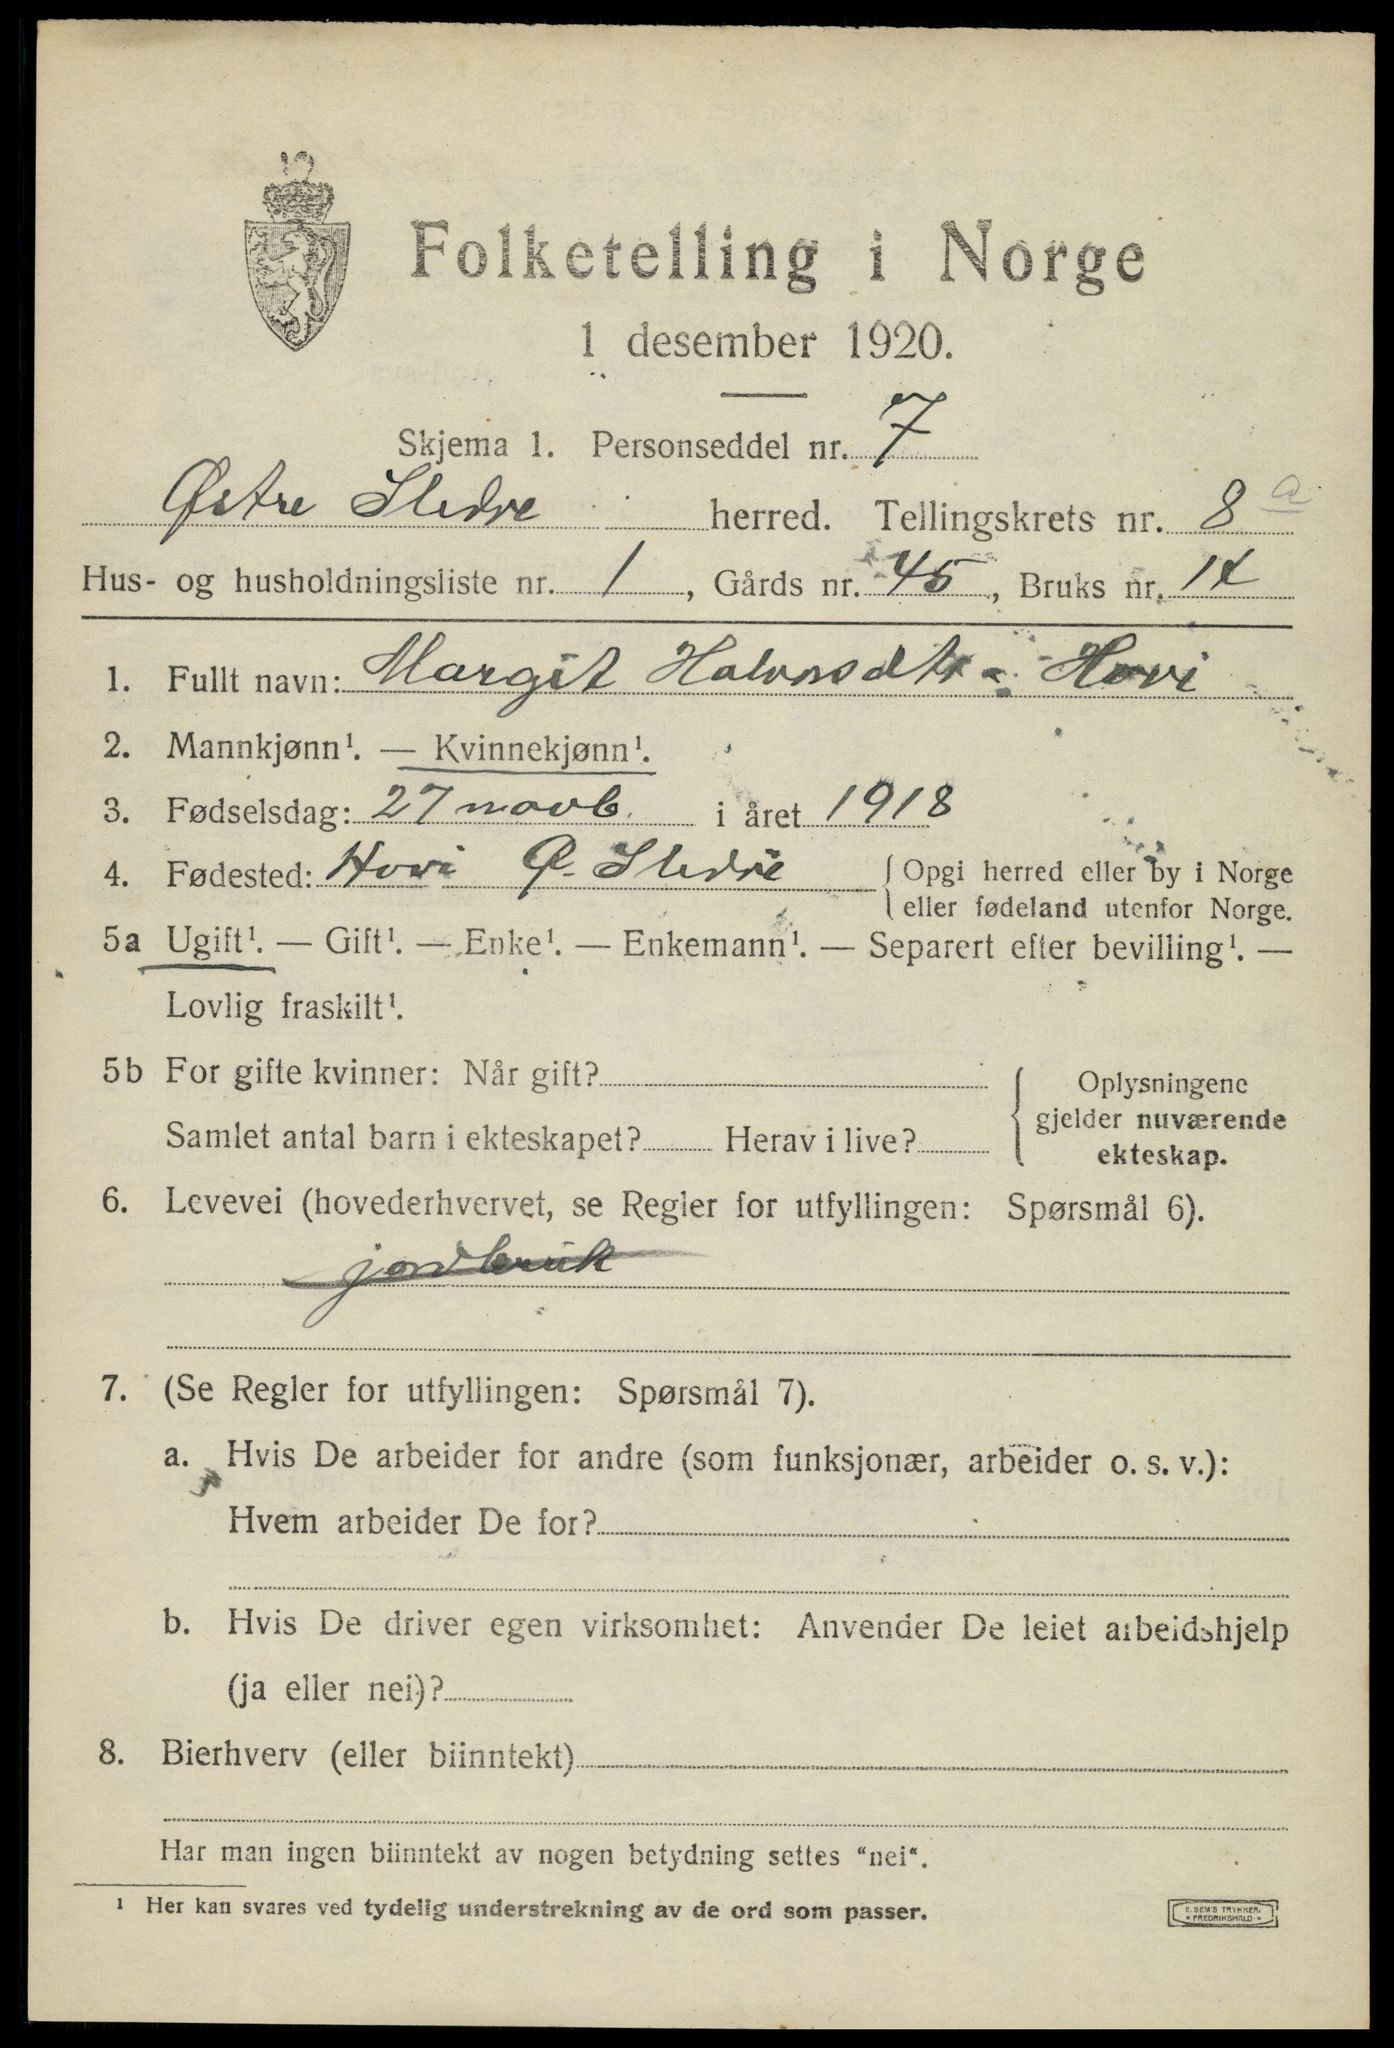 Folketelling i Norge
1 desember 1920.
Skjema 1. Personseddel nr. 7
Østre Slidre herred. Tellingskrets nr. 8 a
Hus- og husholdningsliste nr. 1, Gårds nr. 45, Bruks nr. 14
1. Fullt navn: Margit Halvorsdtr. Hovi
2. Mannkjønn¹. — Kvinnekjønn¹.
3. Fødselsdag: 27 novb. i året 1918
4. Fødested: Hovi Ø. Slidre { Opgi herred eller by i Norge
eller fødeland utenfor Norge.
5a Ugift¹. — Gift¹. — Enke¹. — Enkemann¹. — Separert efter bevilling¹. —
Lovlig fraskilt¹.
5b For gifte kvinner: Når gift?
Samlet antal barn i ekteskapet? Herav i live?
{ Oplysningene
gjelder nuværende
ekteskap.
6. Levevei (hovederhvervet, se Regler for utfyllingen: Spørsmål 6).
jordbruk
7. (Se Regler for utfyllingen: Spørsmål 7).
a. Hvis De arbeider for andre (som funksjonær, arbeider o. s. v.):
Hvem arbeider De for?
b. Hvis De driver egen virksomhet: Anvender De leiet arbeidshjelp
(ja eller nei)?
8. Bierhverv (eller biinntekt)
Har man ingen biinntekt av nogen betydning settes “nei“.
¹ Her kan svares ved tydelig understrekning av de ord som passer.
E. SEM'S TRYKKERI
FREDRIKSHALD